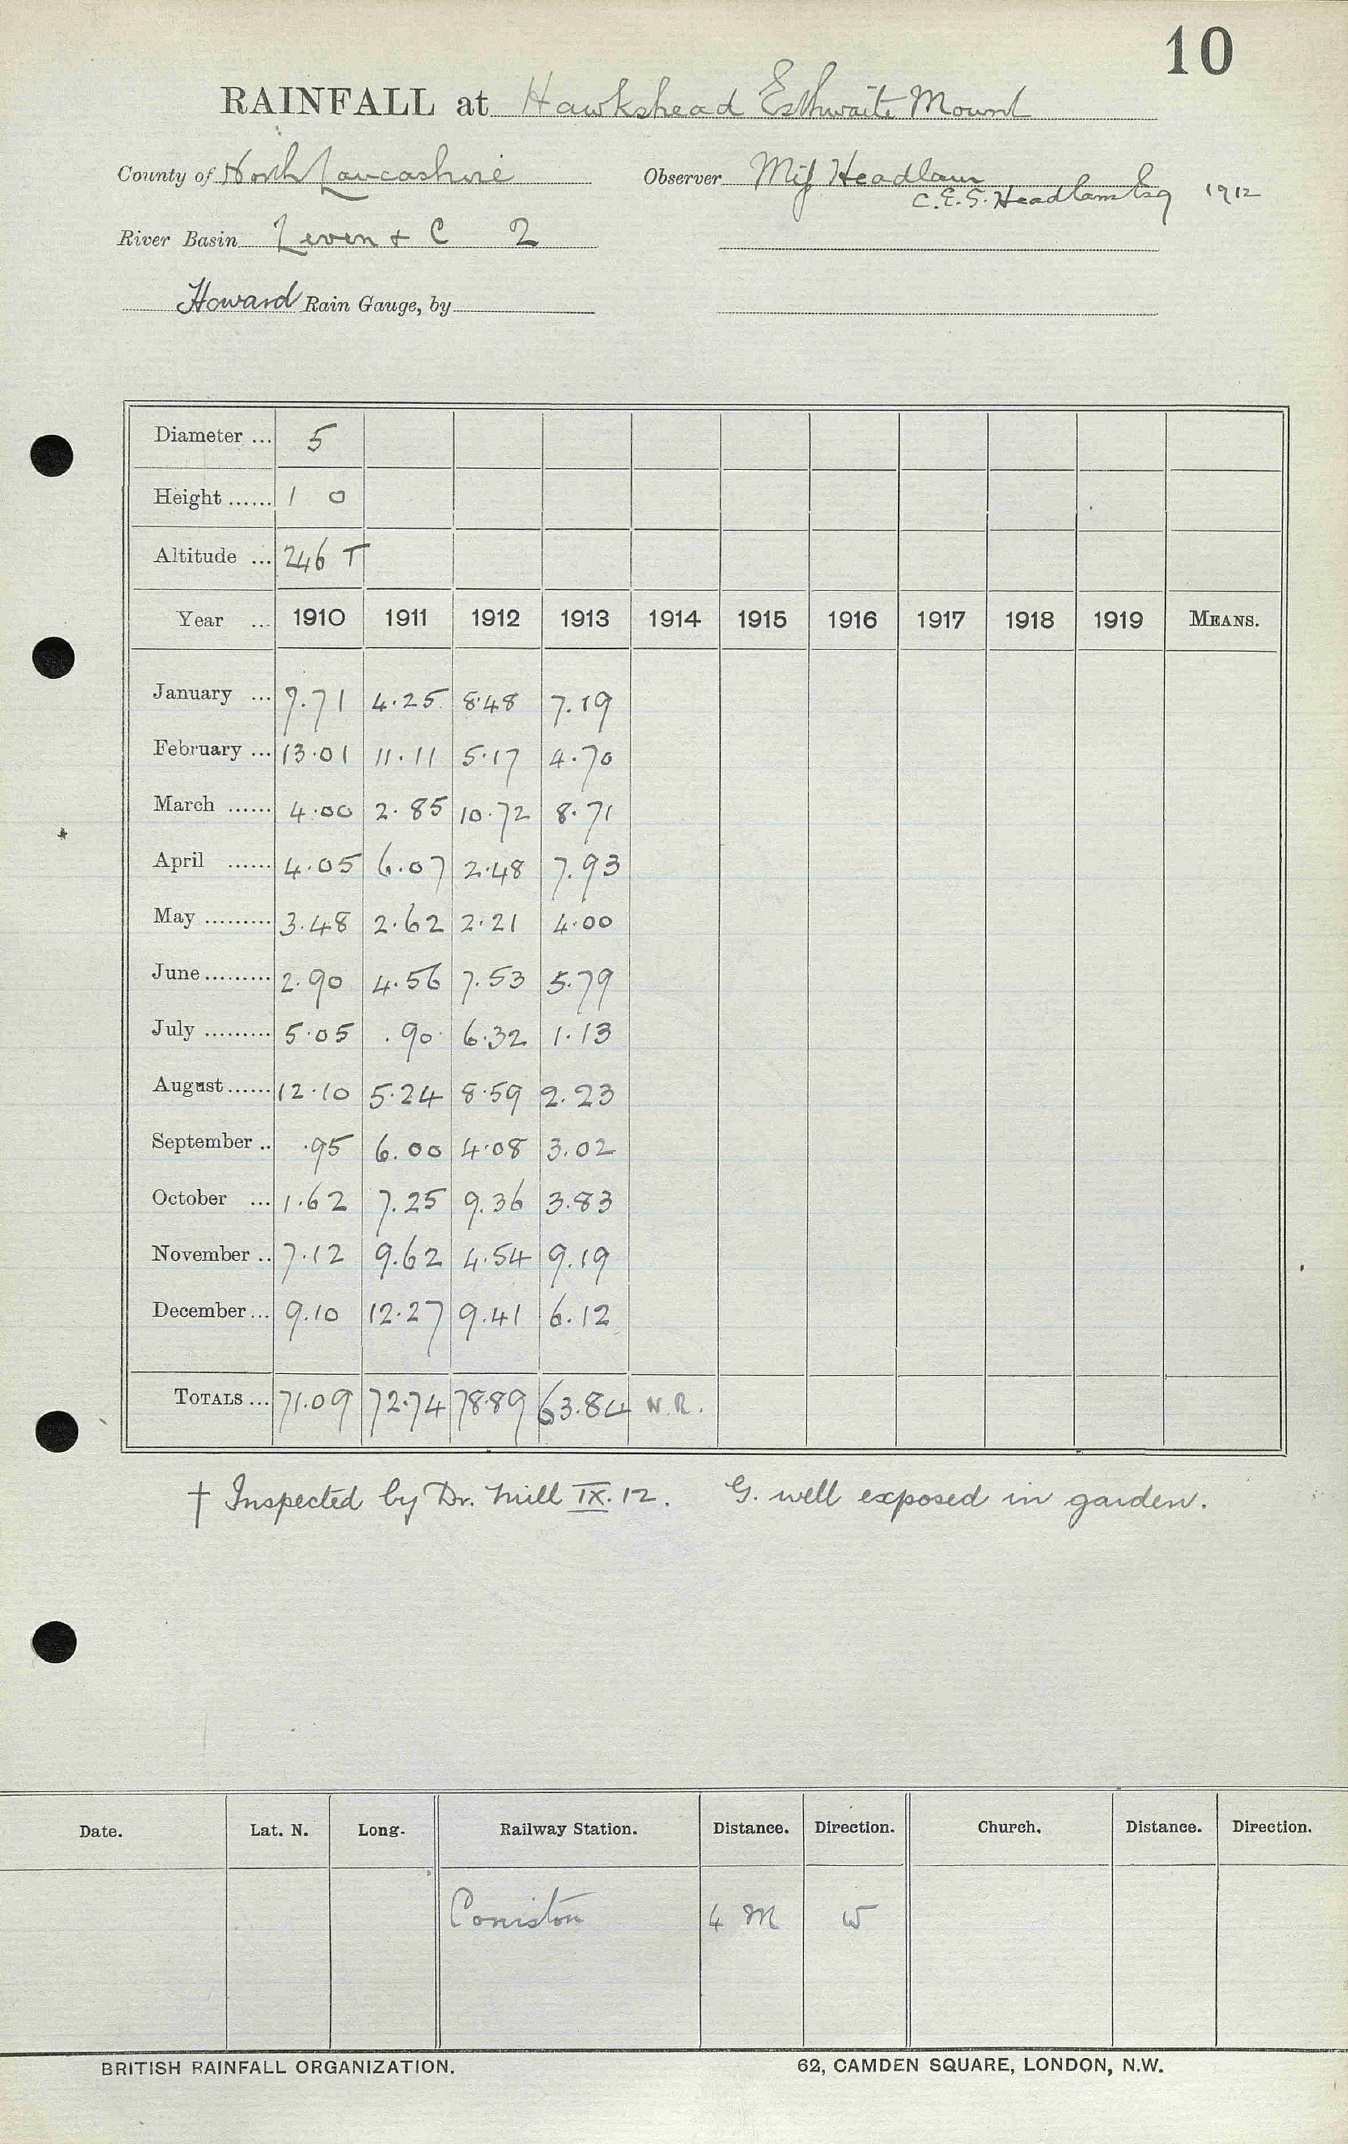 10
RAINFALL at Hawkshead Esthwaite Mount
County of North Lancashire Observer Miss Headlam
C.E.S. Headlam Esq 1912
River Basin Leven & C 2
Howard Rain Gauge, by
Diameter ... 5
Height ...... 1 0
Altitude ... 246 T
Year ... 1910 1911 1912 1913 1914 1915 1916 1917 1918 1919 MEANS.
January ... 7.71 4.25 8.48 7.19
February ... 13.01 11.11 5.17 4.70
March ...... 4.00 2.85 10.72 8.71
April ...... 4.05 6.07 2.48 7.93
May ......... 3.48 2.62 2.21 4.00
June ......... 2.90 4.56 7.53 5.79
July ......... 5.05 .90 6.32 1.13
August ...... 12.10 5.24 8.59 2.23
September .. .95 6.00 4.08 3.02
October ... 1.62 7.25 9.36 3.83
November .. 7.12 9.62 4.54 9.19
December ... 9.10 12.27 9.41 6.12
TOTALS ... 71.09 72.74 78.89 63.84 N.R.
† Inspected by Dr. Mill IX. 12. G. well exposed in garden.
Date. Lat. N. Long. Railway Station. Distance. Direction. Church. Distance. Direction.
Coniston 4 M W
BRITISH RAINFALL ORGANIZATION. 62, CAMDEN SQUARE, LONDON, N.W.